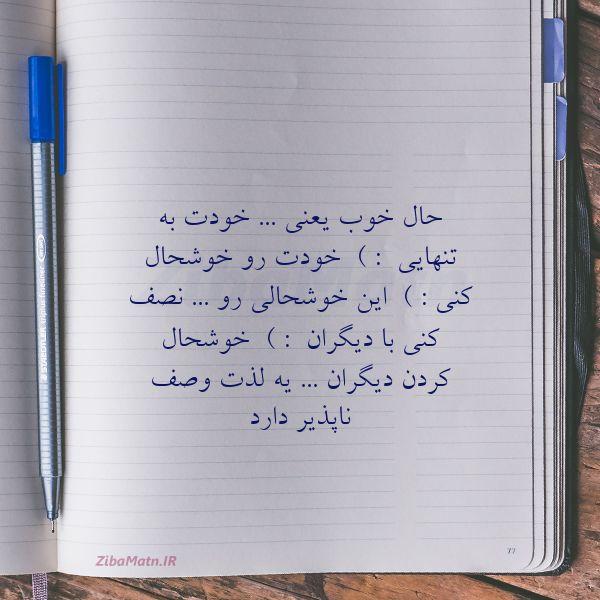 حال خوب یعنی ... خودت به
تنهایی : ) خودت رو خوشحال
کنی : ) این خوشحالی رو ... نصف
کنی با دیگران : ) خوشحال
کردن دیگران ... یه لذت وصف
ناپذیر دارد
ZibaMatn.IR
77